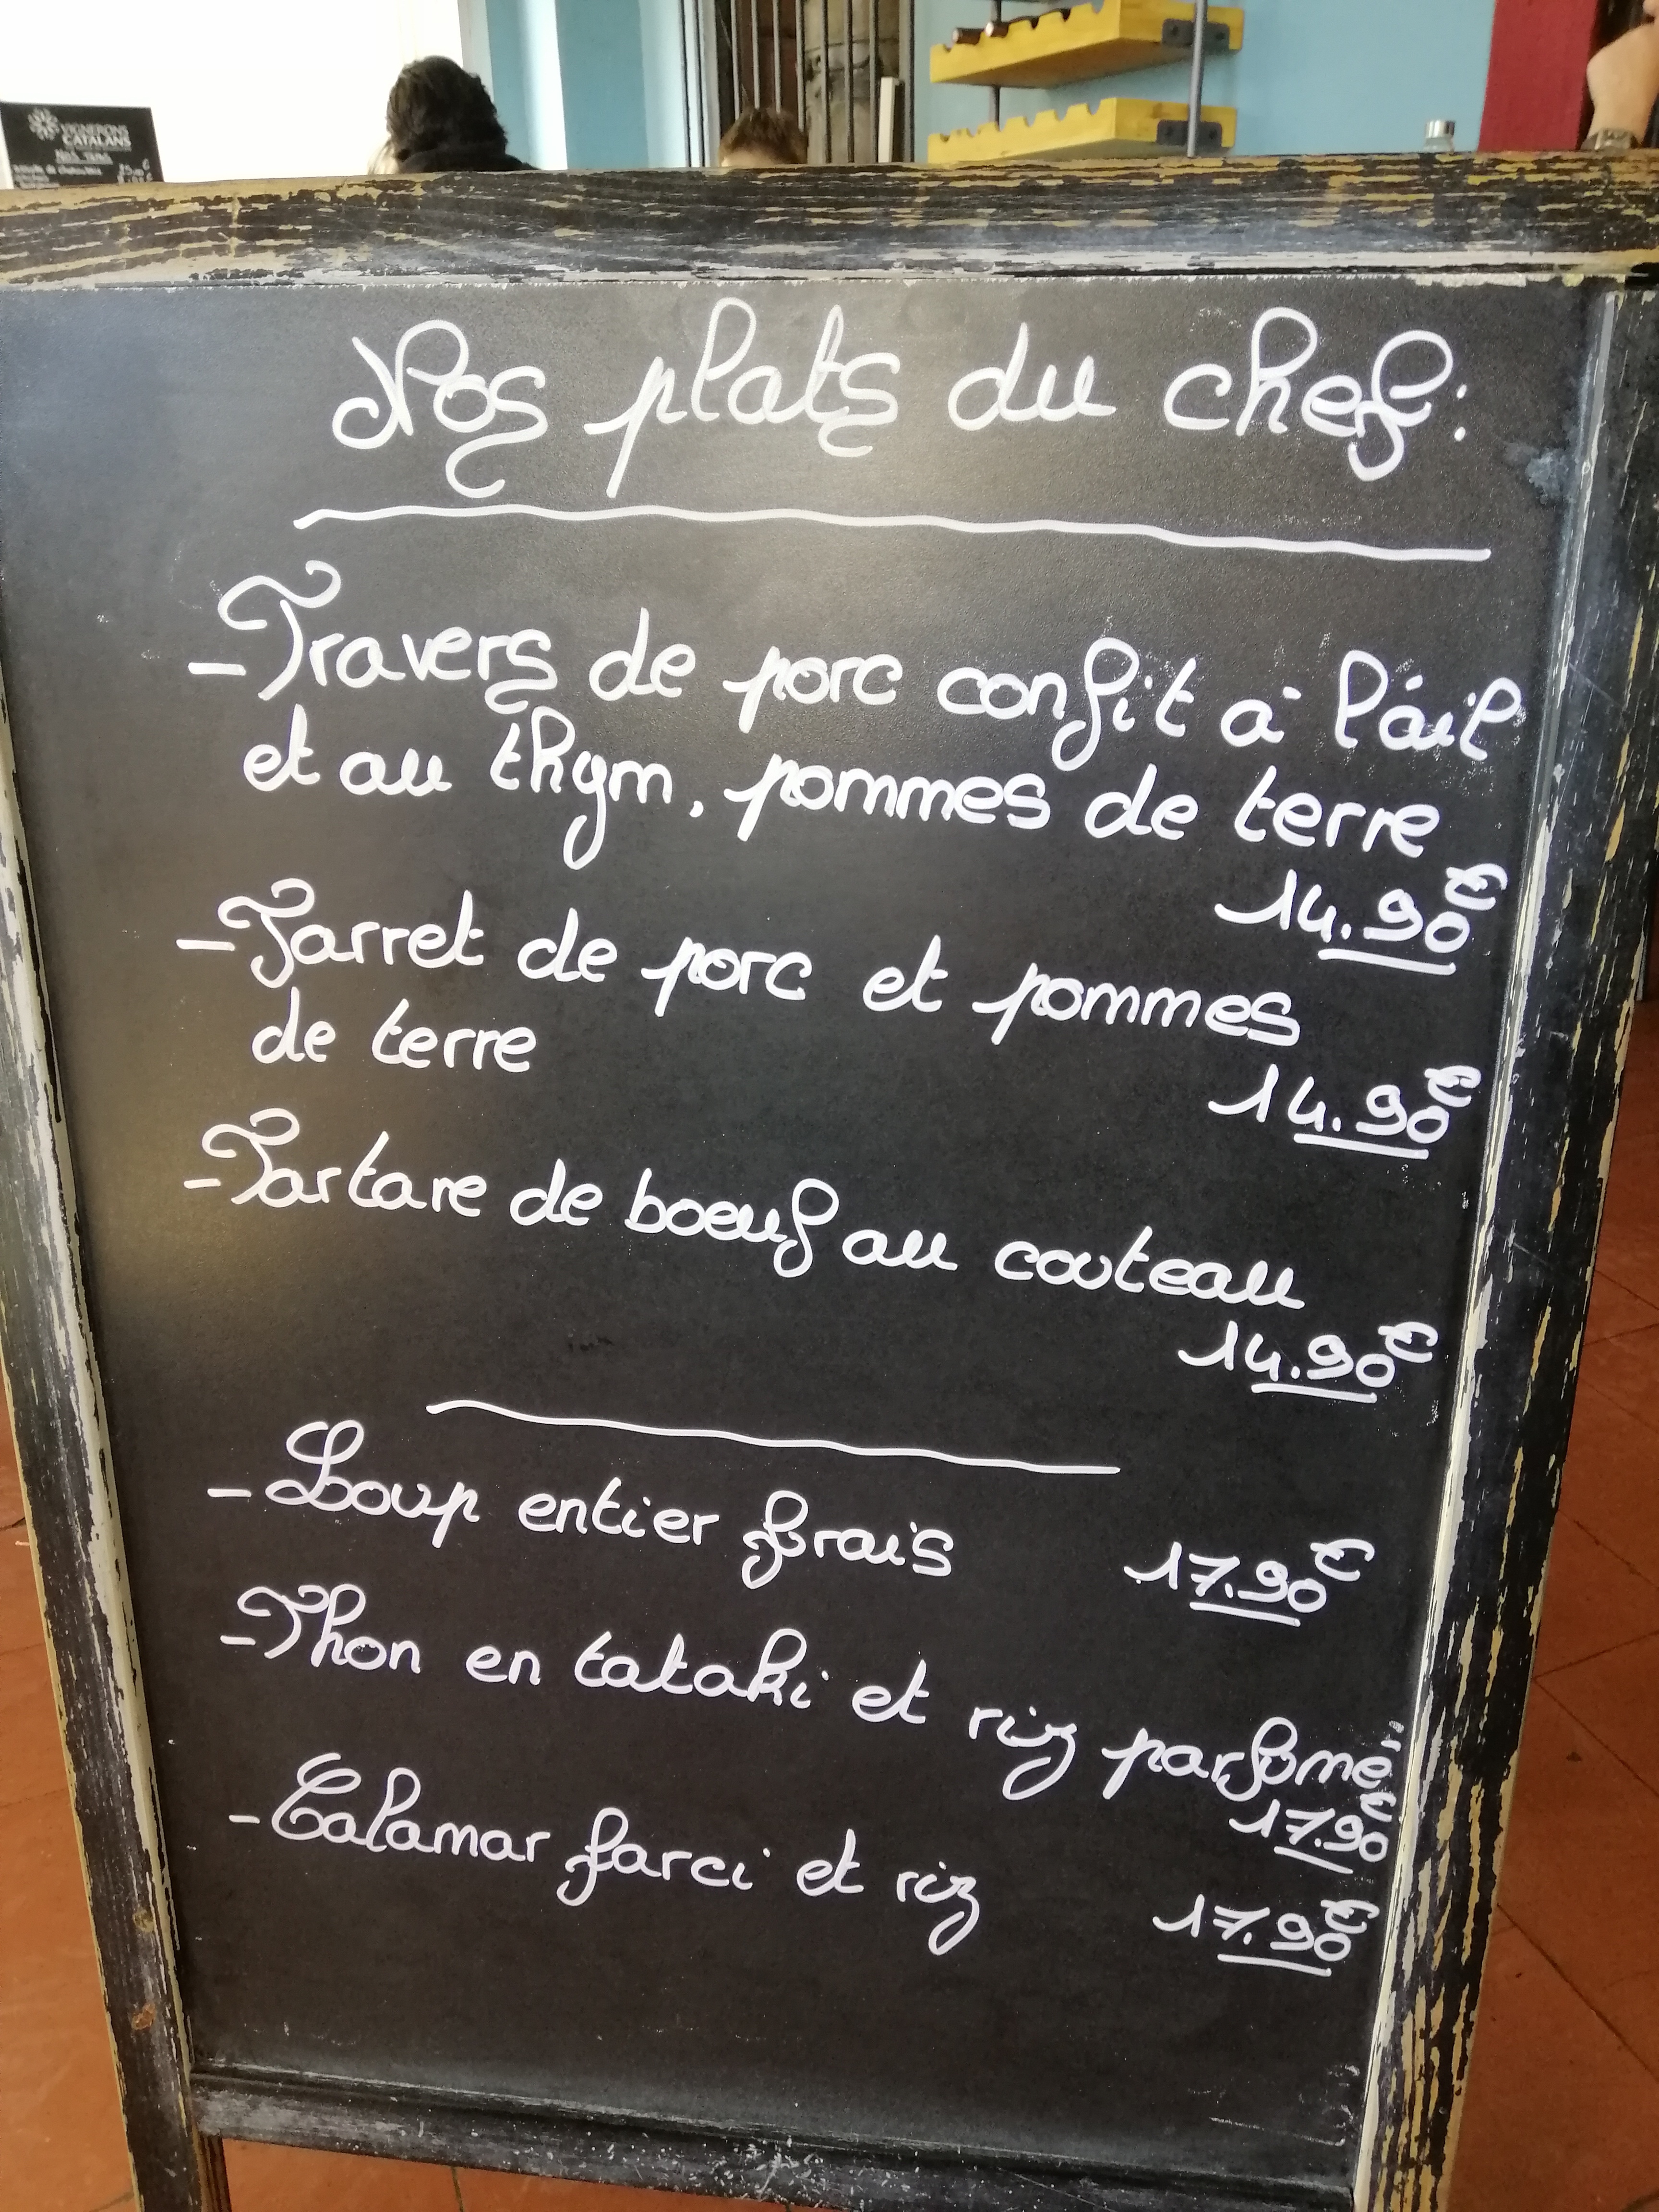 VIGNERONS
CATALANS
Nos plats du chef:
- Travers de porc confit à l'ail
et au thym, pommes de terre
14.90€
- Jarret de porc et pommes
de terre
14.90€
- Tartare de boeuf au couteau
14.90€
- Loup entier frais 17.90€
- Thon en tataki et riz parfumé
17.90€
- Calamar farci et riz 17.90€